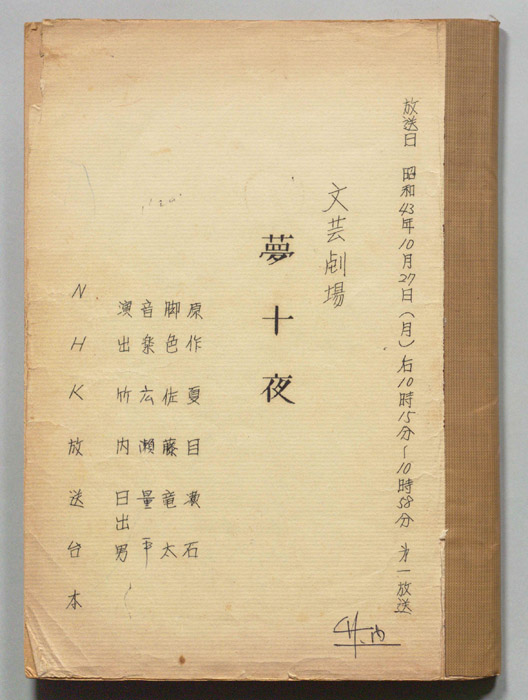 放送日 昭和43年10月27日(月)后10時15分~10時58分 第一放送
文芸劇場
夢十夜
原作 夏目漱石
脚色 佐藤竜太
音楽 広瀬量平
演出 竹内日出男
NHK放送台本
竹内